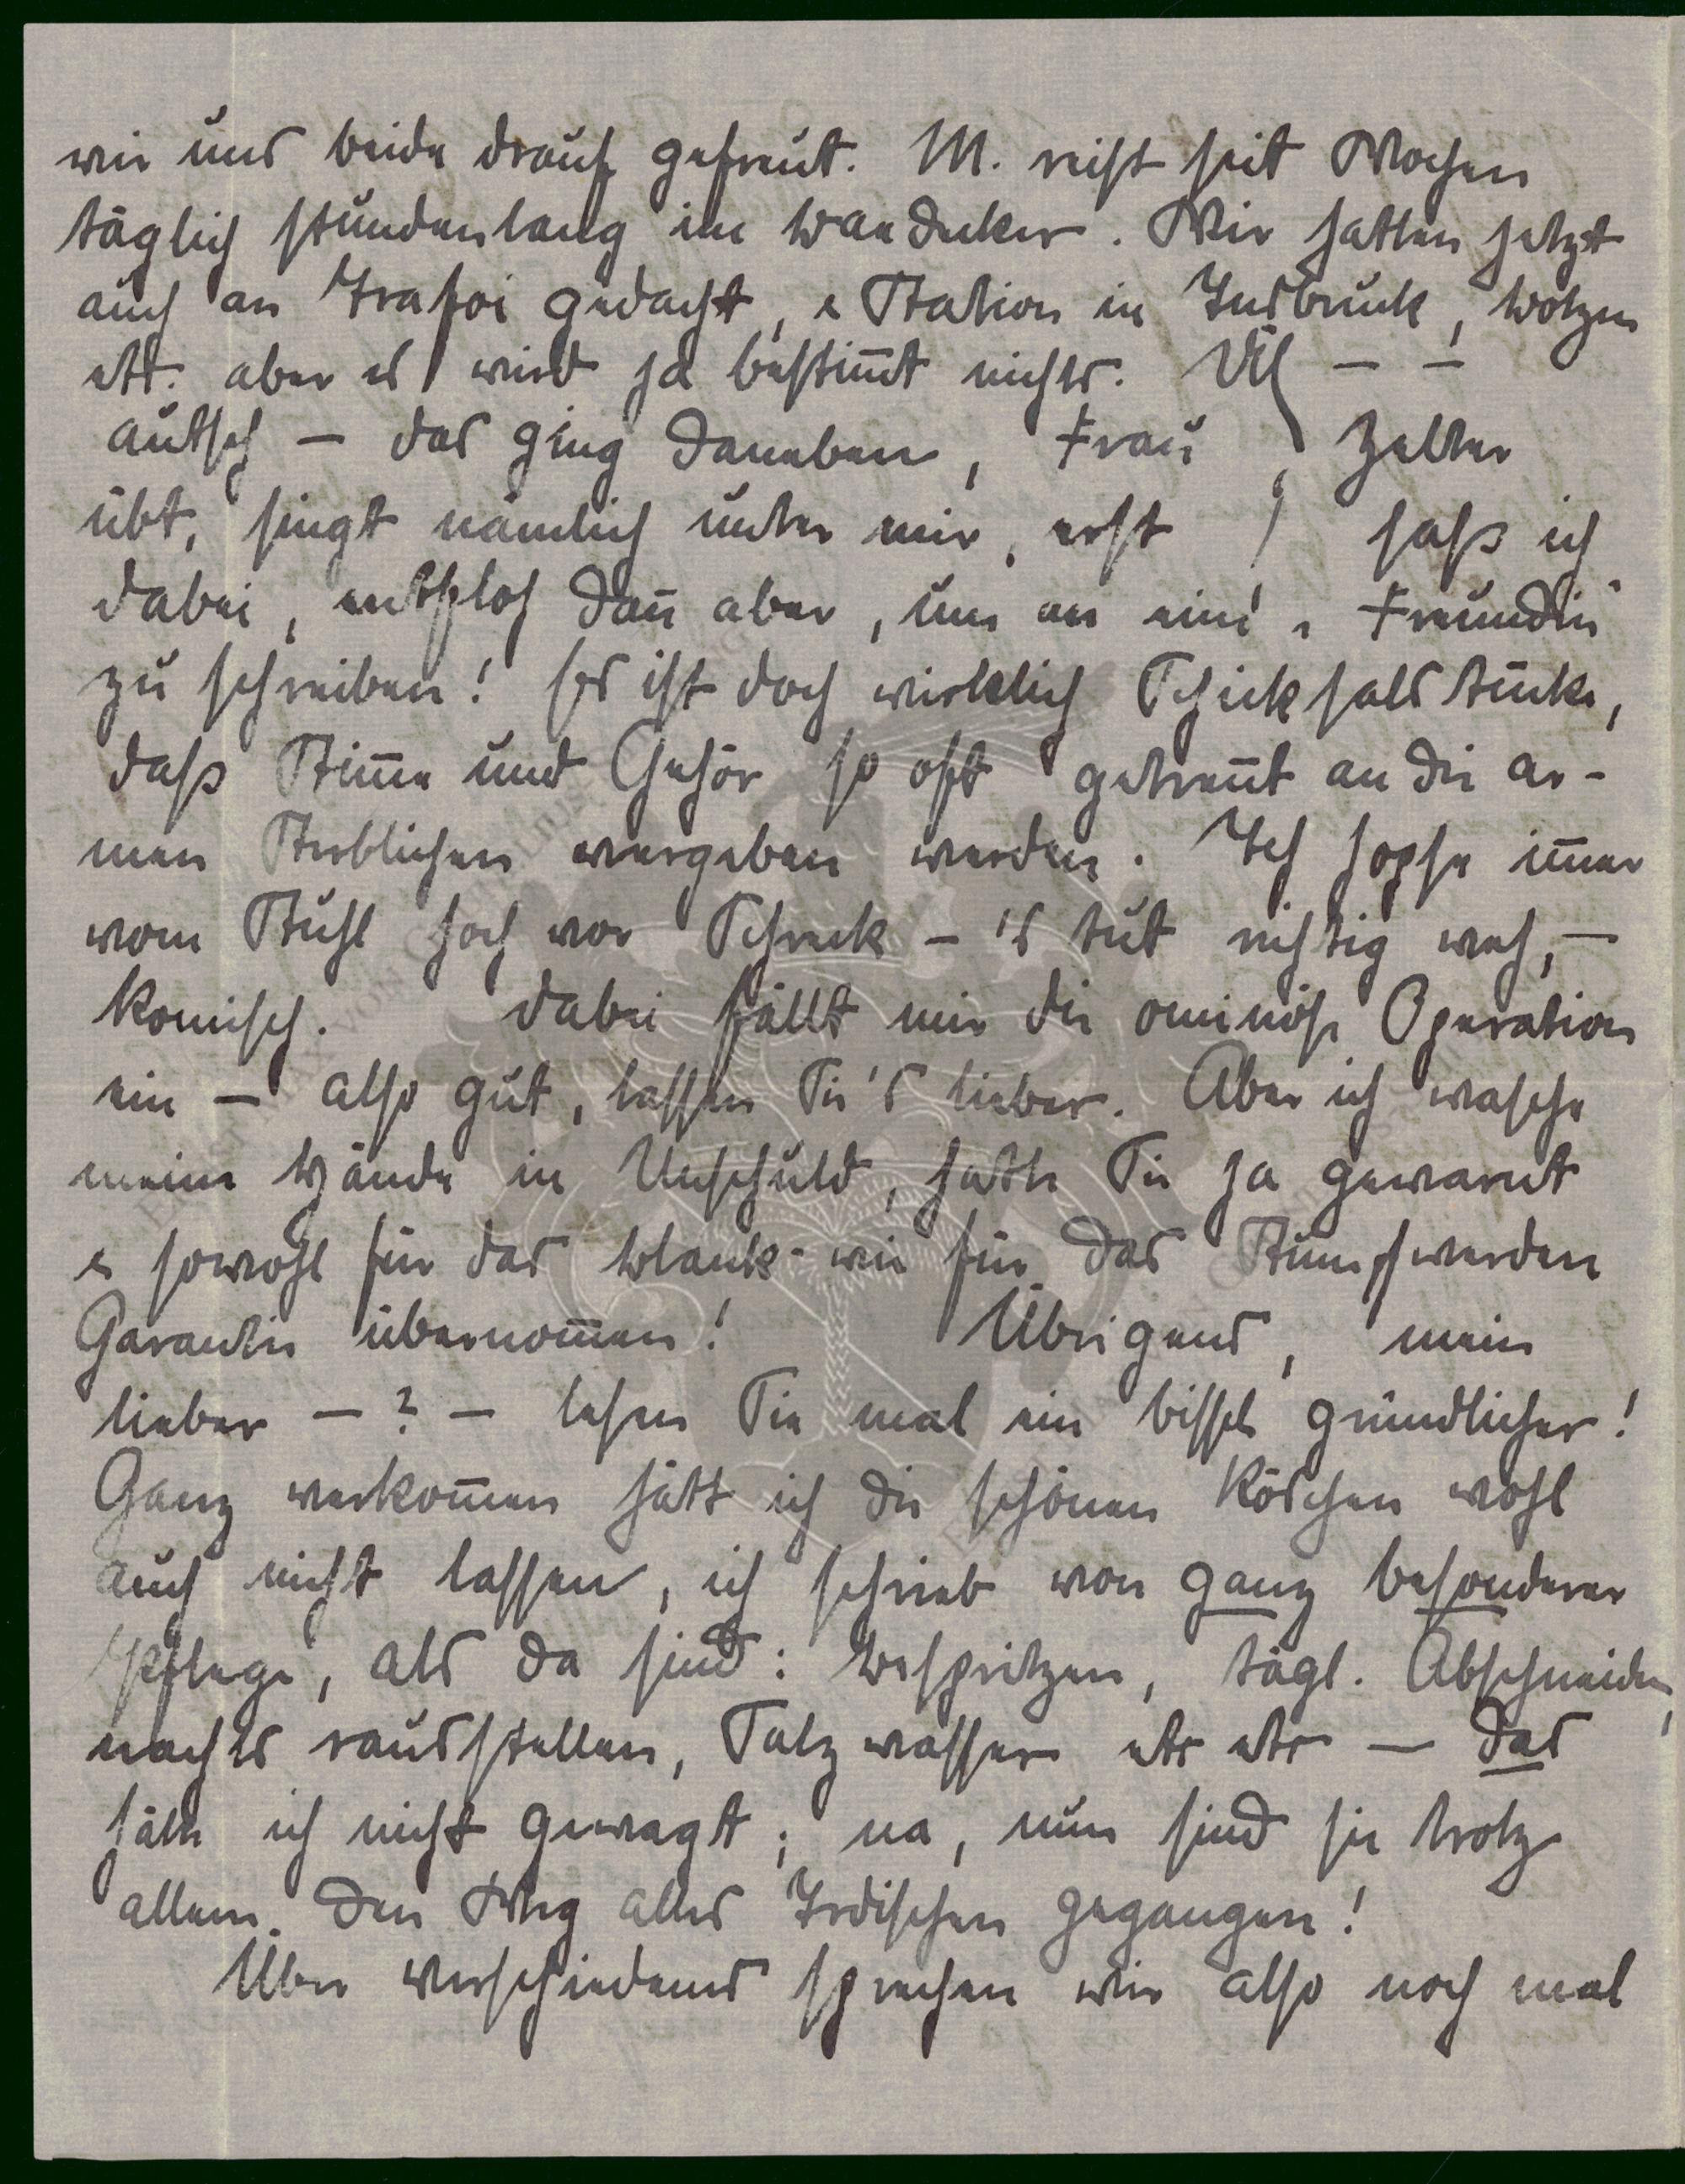 wir uns beide drauf gefreut. M. reist seit Wochen
täglich stundenlang im Baedecker. Wir hatten jetzt
auch an Trafoi gedacht, & Station in Insbruck, Bozen
ett. aber es wird ja bestim̄t nichts. Üh – –
autsch – das ging daneben, Frau Zelter
übt, singt nämlich unter mir, erst saß ich
dabei, entfloh dan̄ aber, um an eine „Freundin“
zu schreiben! Es ist doch wirklich Schicksalstücke,
daß Stim̄e und Gehör so oft getren̄t an die ar-
men Sterblichen vergeben werden. Ich hopse im̄er
vom Stuhl hoch vor Schreck – 's tut richtig weh, –
komisch. Dabei fällt mir die ominöse Operation
ein – also gut, lassen Sie's lieber. Aber ich wasche
meine Hände in Unschuld, hatte Sie ja gewarnt
& sowohl für das Blank- wie für das Stumpfwerden
Garantie übernom̄en! Übrigens, mein
lieber – ? – lesen Sie mal ein bissel gründlicher!
Ganz verkom̄en hätt ich die schönen Röschen wohl
auch nicht lassen, ich schrieb von ganz besonderer
Pflege, als da sind: Bespritzen, tägl. Abschneiden,
nachts rausstellen, Salzwasser etc etc – das
hätte ich nicht gewagt; na, nun sind sie trotz
allem den Weg alles Irdischen gegangen!
Über verschiedenes sprechen wir also noch mal